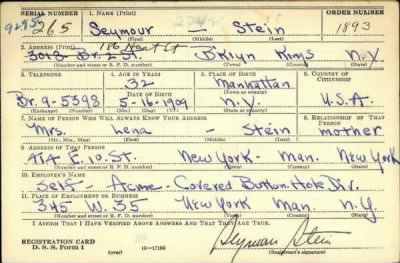 SERIAL NUMBER 1. NAME (Print) ORDER NUMBER
265 Seymour Stein 1893
(First) (Middle) (Last)
2. ADDRESS (Print) 186 Hart St
3018 Br. 2 St. B'klyn Kings N.Y.
(Number and street or R. F. D. number) (Town) (County) (State)
3. TELEPHONE 4. AGE IN YEARS 5. PLACE OF BIRTH 6. COUNTRY OF CITIZENSHIP
32 Manhattan
Br. 9-5398 DATE OF BIRTH (Town or county)
5-16-1909 N.Y. U.S.A.
(Exchange) (No.) (Mo.) (Day) (Yr.) (State or country)
7. NAME OF PERSON WHO WILL ALWAYS KNOW YOUR ADDRESS 8. RELATIONSHIP OF THAT PERSON
Mrs. Lena - Stein mother
(Mr., Mrs., Miss) (First) (Middle) (Last)
9. ADDRESS OF THAT PERSON
414 E. 10. St. New York - Man. New York
(Number and street or R. F. D. number) (Town) (County) (State)
10. EMPLOYER'S NAME
Self - Acme - Covered Button Hole Div.
11. PLACE OF EMPLOYMENT OR BUSINESS
345 W. 35 New York Man. N.Y.
(Number and street or R. F. D. number) (Town) (County) (State)
I AFFIRM THAT I HAVE VERIFIED ABOVE ANSWERS AND THAT THEY ARE TRUE.
REGISTRATION CARD
D. S. S. Form 1 (over) 16-17105 Seymour Stein
(Registrant's signature)